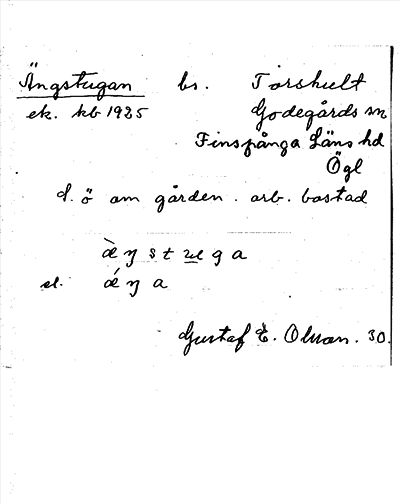 Ängstugan bs. Torshult
ek. kb 1925 Godegårds sn
Finspånga Läns hd
Ögl
d. ö om gården. arb. bostad
æ̀ŋstuga
el. ǽŋa
Gustaf E. Olsson. 30.